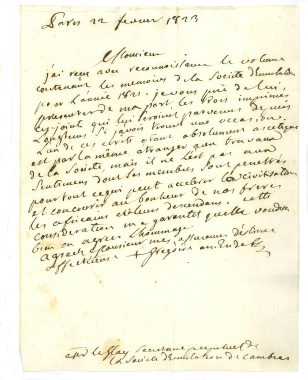 Paris 22 fevrier 1823
Monsieur
j'ai reçu avec reconnoissance le volume
contenant les memoires de la Societe d'Emulation
pour l'année 1821. je vous prie de lui
presenter de ma part les trois imprimés
cy-joint qui lui seroient parvenus depuis
Longtems si j'avois trouvé une occasion.
L'un de ces ecrits etant absolument ascetique
est par la même etranger aux travaux
de la Societe mais il ne l'est pas aux
Sentimens dont ses membres sont penetrés
pour tout ce qui peut accelerer la civilisation
et concourir au bonheur de nos freres
les africains et leurs descendans. cette
consideration me garantit quelle voudra
bien en agreer l'hommage
Agreez Monsieur mes assurances d'estime
affectueuse + Gregoire anc. Ev. de
Secretaire perpetuel de
la Societe d'Emulation de Cambrai